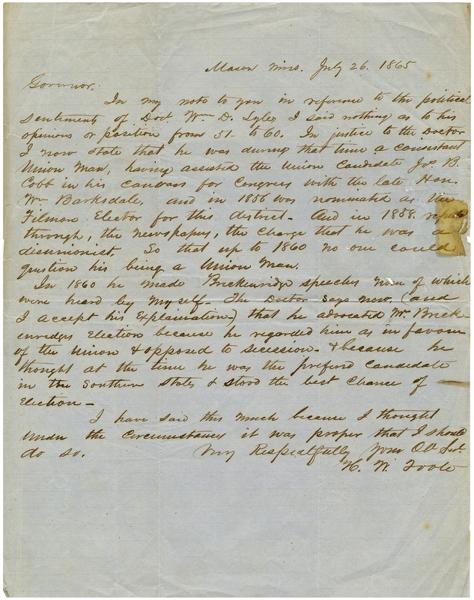 Macon Miss. July 26. 1865
Govenor.
In my note to you in reference to the political
sentiments of Doct Wm D. Lyles I said nothing as to his
opinions or position from 51. to 60. In justice to the Doctor
I now state that he was during that time a consistant
Union Man, having assisted the Union Candidate Jos. B.
Cobb in his canvass for Congress with the late Hon.
Wm Barksdale, and in 1856 was nominated as the
Filmore Elector for this district. And in 1858.
through, the newspapers, the Charge that he was a
disunionist. So that up to 1860 no one could
question his being a Union Man.
In 1860 he made Breckenridge speeches none of which
were heard by myself. The Doctor says now, (and
I accept his Explaination) that he advocated Mr. Breck-
enridges Election because he regarded him as in favour
of the Union & opposed to secession - & because he
thought at the time he was the prefered candidate
in the Southern States & stood the best Chance of
Election -
I have said this much because I thought
under the circumstances it was proper that I should
do so. Very Respectfully Your Obt Svt.
H. W. Foote